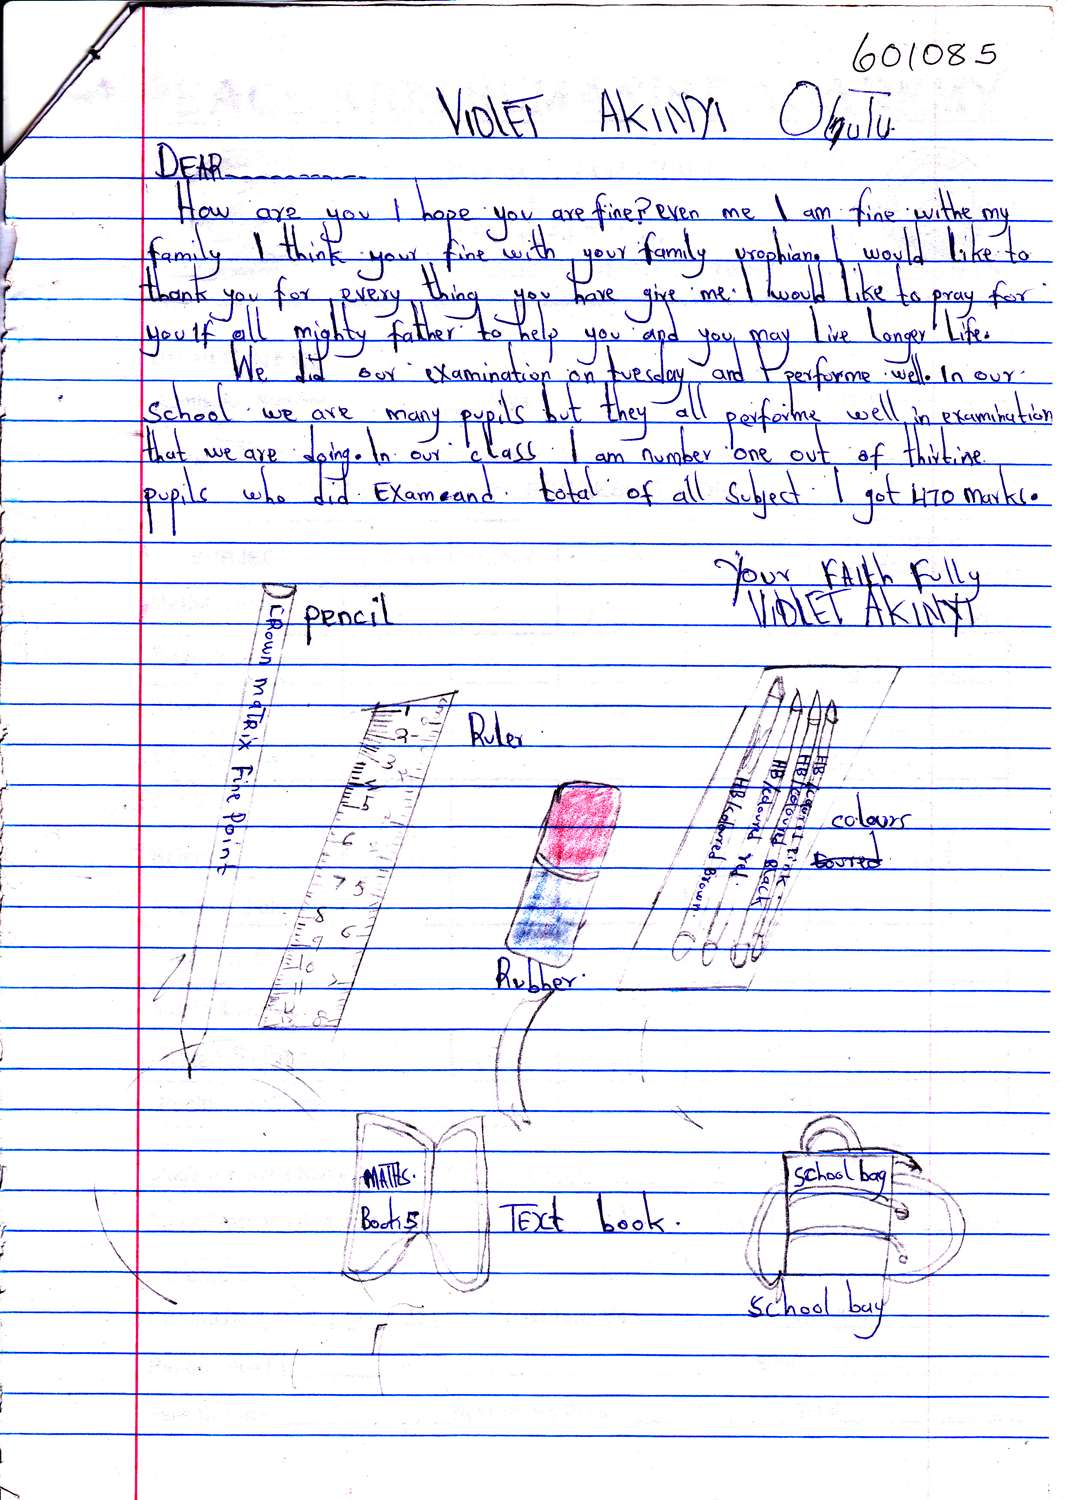 601085
VIOLET AKINYI
DEAR
How are you I hope you are fine? even me I am fine withe my
family I think your fine with your family I would like to
thank you for every thing you have give me. I would like to pray for
you If all mighty father to help you and you may live longer Life.
We did our examination on tuesday and I performe well. In our
School we are many pupils but they all performe well in examination
that we are doing. In our class I am number one out of thirtine
pupils who did Exam and total of all Subject I got 470 marks.
Your FAith Fully
VIOLET AKINYI
pencil
CROWN MATRIX Fine Point
Ruler
1
2
3
5
6
7 5
8
9 6
10
8
HB/coloured Pink
HB/coloured Black
HB/coloured red.
HB/coloured Brown.
colours
Rubber.
MATHS.
Book 5
TExt book.
School bag
School bag